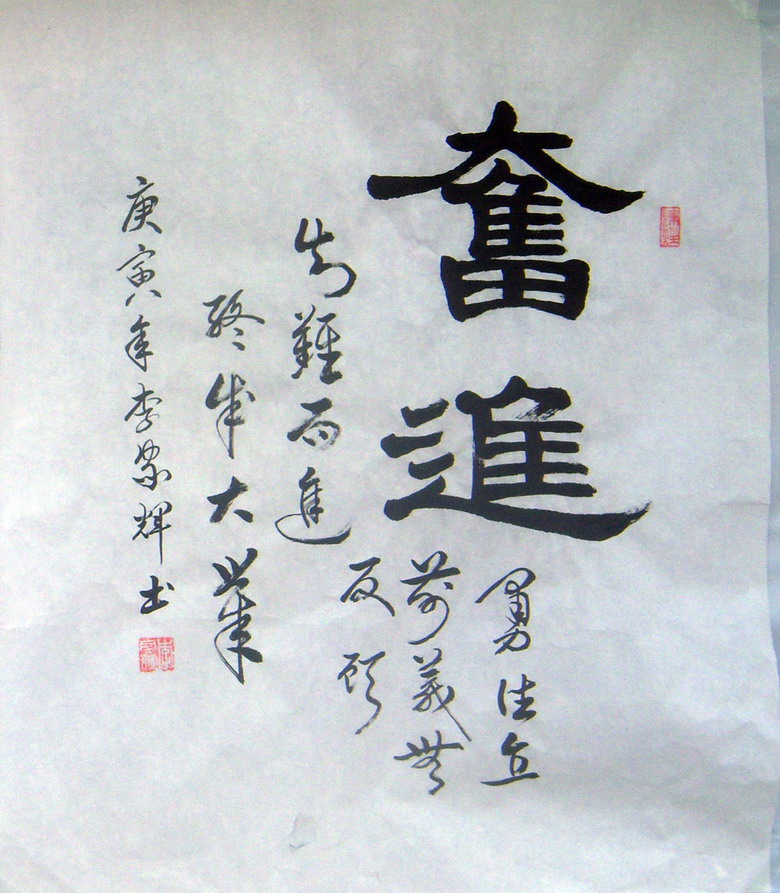 奮進
勇往直
前義無
反顧
知難而進
終成大業
庚寅年李宗輝书